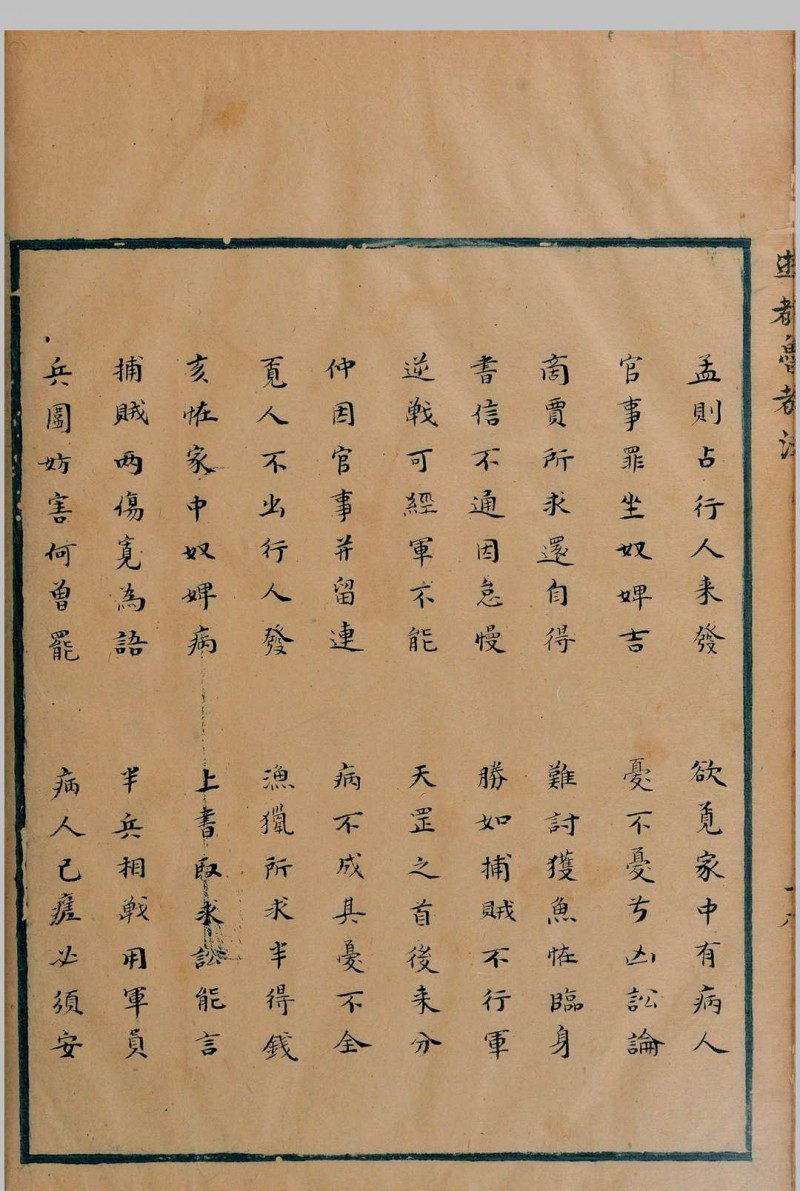 孟則占行人来發　欲覓家中有病人
官事罪坐奴婢吉　憂不憂兮凶訟論
商賈所求還自得　難討獲魚恠臨身
書信不通因怠慢　勝如捕賊不行軍
逆戦可經軍不能　天罡之首後来分
仲因官事并留連　病不成具憂不全
覓人不出行人發　漁獵所求半得錢
亥恠家中奴婢病　上書取求訟能言
捕賊两傷寛為語　半兵相戦用軍員
兵圖妨害何曾罷　病人已瘥必須安